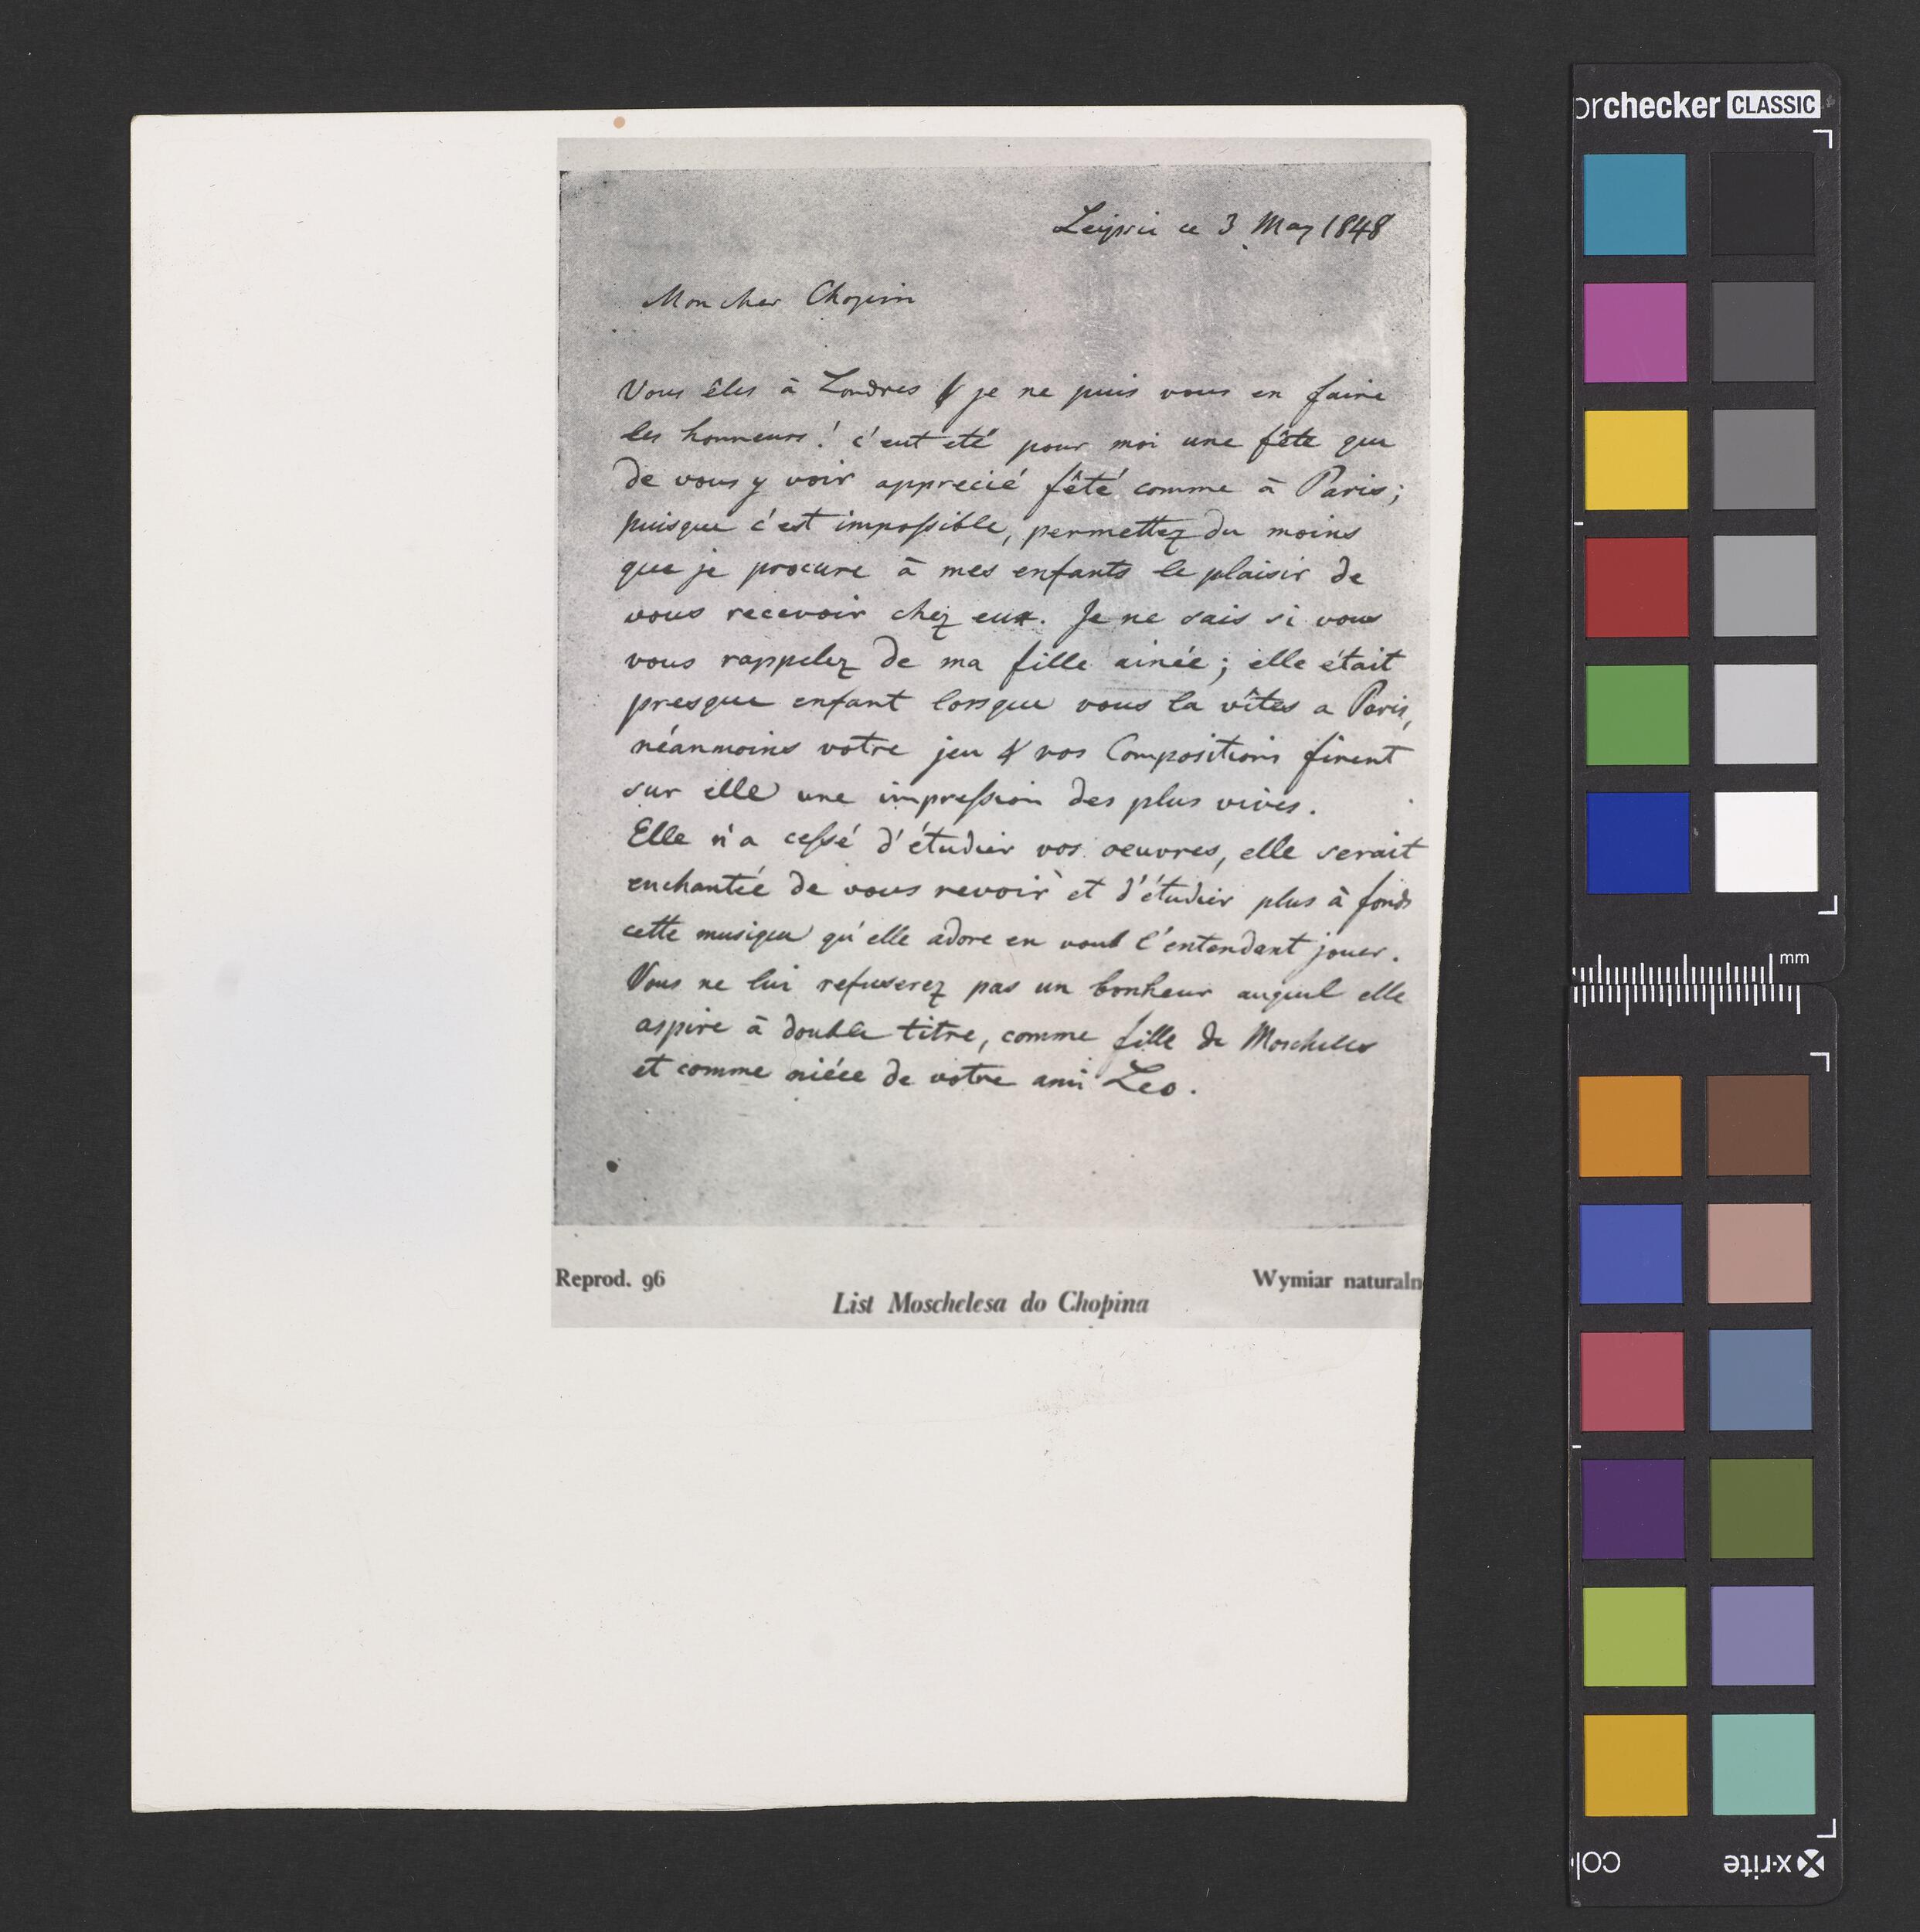 Leipsic ce 3 May 1848
Mon cher Chopin
Vous êtes à Londres & je ne puis vous en faire
les honneurs! c'eut eté pour moi une fête que
de vous y voir apprecié fêté comme à Paris;
puisque c'est impossible, permettez du moins
que je procure à mes enfants le plaisir de
vous recevoir chez eux. Je ne sais si vous
vous rappelez de ma fille ainée; elle était
presque enfant lorsque vous la vîtes a Paris,
néanmoins votre jeu & vos Compositions firent
sur elle une impression des plus vives.
Elle n'a cessé d'étudier vos oeuvres, elle serait
enchantée de vous revoir et d'étudier plus à fonds
cette musique qu'elle adore en vous l'entendant jouer.
Vous ne lui refuserez pas un bonheur auquel elle
aspire à double titre, comme fille de Moscheles
et comme niéce de votre ami Leo.
Reprod. 96
Wymiar naturaln
List Moschelesa do Chopina
orchecker CLASSIC
mm
x-rite
colo